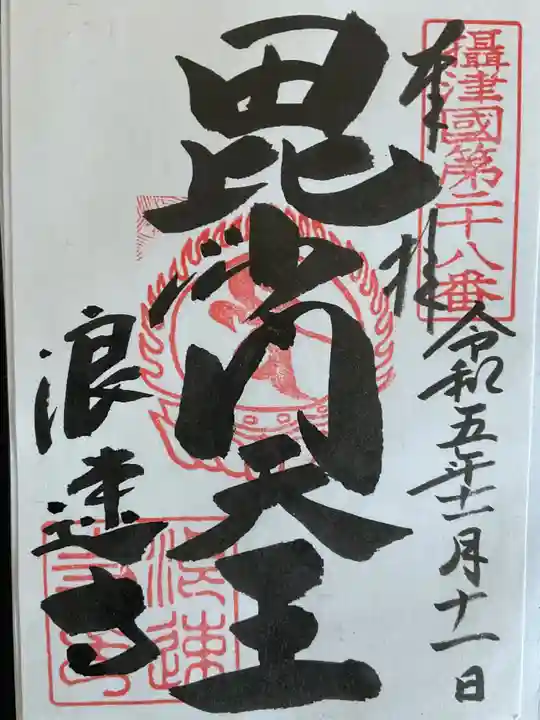 攝津國第二十八番
奉拝
令和五年十一月十一日
毘沙門天王
浪速寺
浪速寺印